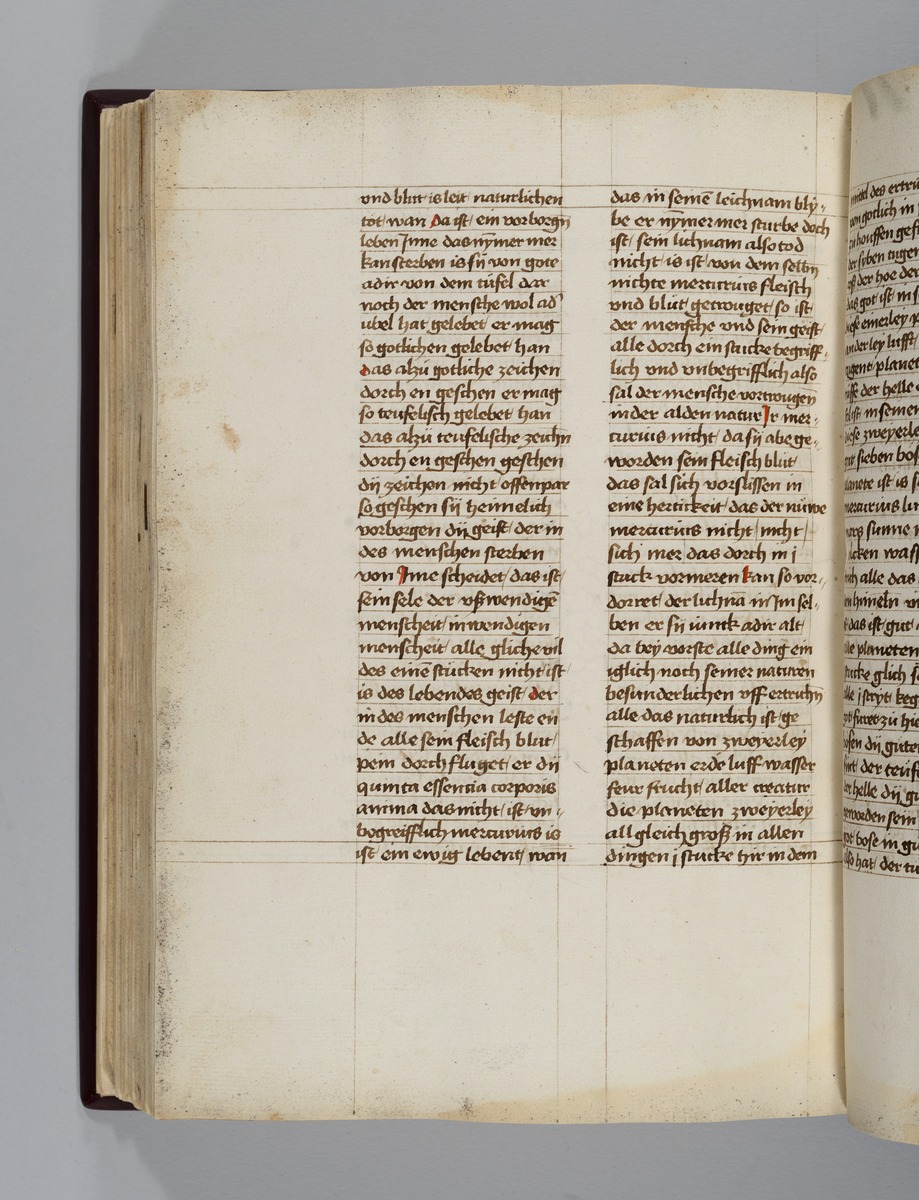 vnd blut is leit naturlichen
tot / wan da ist / ein vorborgn̄
leben Jnne das nȳmer mer
kan sterben is sij von gote
adir von dem tüfel dar
noch der mensche wol ad'
ubel hat gelebet / er mag
so gotlichen gelebet / han
das alzu gotliche zeichen
dorch en geschen er mag
so teufelisch gelebet / han
das alzu teufelische zeichn
dorch en geschen geschen
dij zeichen nicht offenpar
so geschen sij heimelich
vorborgen dij geist / der in
des menschen sterben
von Jnne scheidet / das ist /
sein sele der vßwendigē
menscheit / inwendigen
menscheit / alle gliche vil
des einē stucken nicht / ist /
is des lebendes geist / der
in des menschen leste en
de alle sein fleisch blut /
pein dorch fluget / er dij
quinta essencia corporis
anima das nicht / ist / vn -
begreifflich mercurius is
ist / ein ewig lebent / wan
das in seinē leichnam bly -
be er nȳmer mer sturbe doch
ist / sein lichnam also tod
nicht / is ist / von dem selbn
nichte mercurius fleisch
vnd blut / getwuget / so ist
der mensche vnd sein geist /
alle dorch ein stucke begriff -
lich vnd vnbegrifflich also
sal der mensche vortwugen
in der alden natur Jr mer -
curius nicht / da sij abe ge -
worden sein fleisch blut /
das sal sich vorslissen in
eine hertickeit / das der nuwe
mercurius nicht / nicht /
sich mer das dorch in j
stuck vormeren kan so vor -
dorret / der lichnā in Jm sel -
ben er sij iunck adir alt /
da bey vorste alle ding ein
iglich noch seiner naturen
besunderlichen vff ertruhn
alle das naturlich ist / ge
schaffen von zweyerley
planeten erde lufft wasser
feur frucht / aller creatur
die planeten zweyerley
all gleich groß in allen
dingen j stucke hir in dem